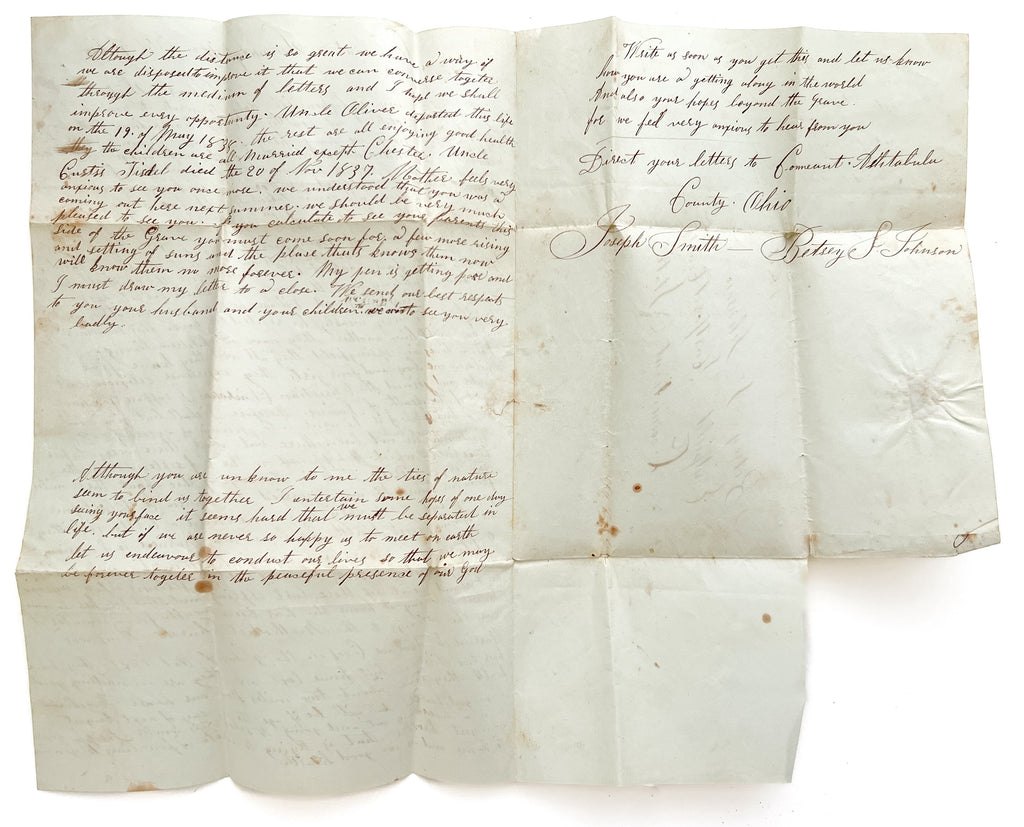 Altough the distance is so great we have a way if
we are disposed to improve it that we can converse togeter
through the medium of Letters and I hope we shall
improve evry opportunity. Uncle Oliver departed this life
on the 19. of May 1838. the rest are all enjoying good health
the children are all Married except Chester. Uncle
Curtis Tisdel died the 20 of Nov 1837. Mother feels very
anxious to see you once more. we understood that you was a
coming out here next summer. we should be very much
pleased to see you. if you calculate to see your Parents this
side of the Grave you must come soon for a few more rising
and setting of suns and the place thats knows them now
will know them no more forever. My pen is getting poor and
I must draw my letter to a close. We send our best respects
to you your husband and your children. we want to see you very
badly.
Although you are unknow to me the ties of nature
seem to bind us together I entertain some hopes of one day
seing your face it seems hard that we must be separated in
life. but if we are never so happy as to meet on earth
let us endeavour to conduct our lives so that we may
be forever togeter in the peaceful presence of our God
Write as soon as you get this and let us know
how you are a getting along in the world
And also your hopes beyond the grave.
for we feel very anxious to hear from you
Direct your letters to Coneaut. Ashtabula
County. Ohio
Joseph Smith — Betsey S Johnson